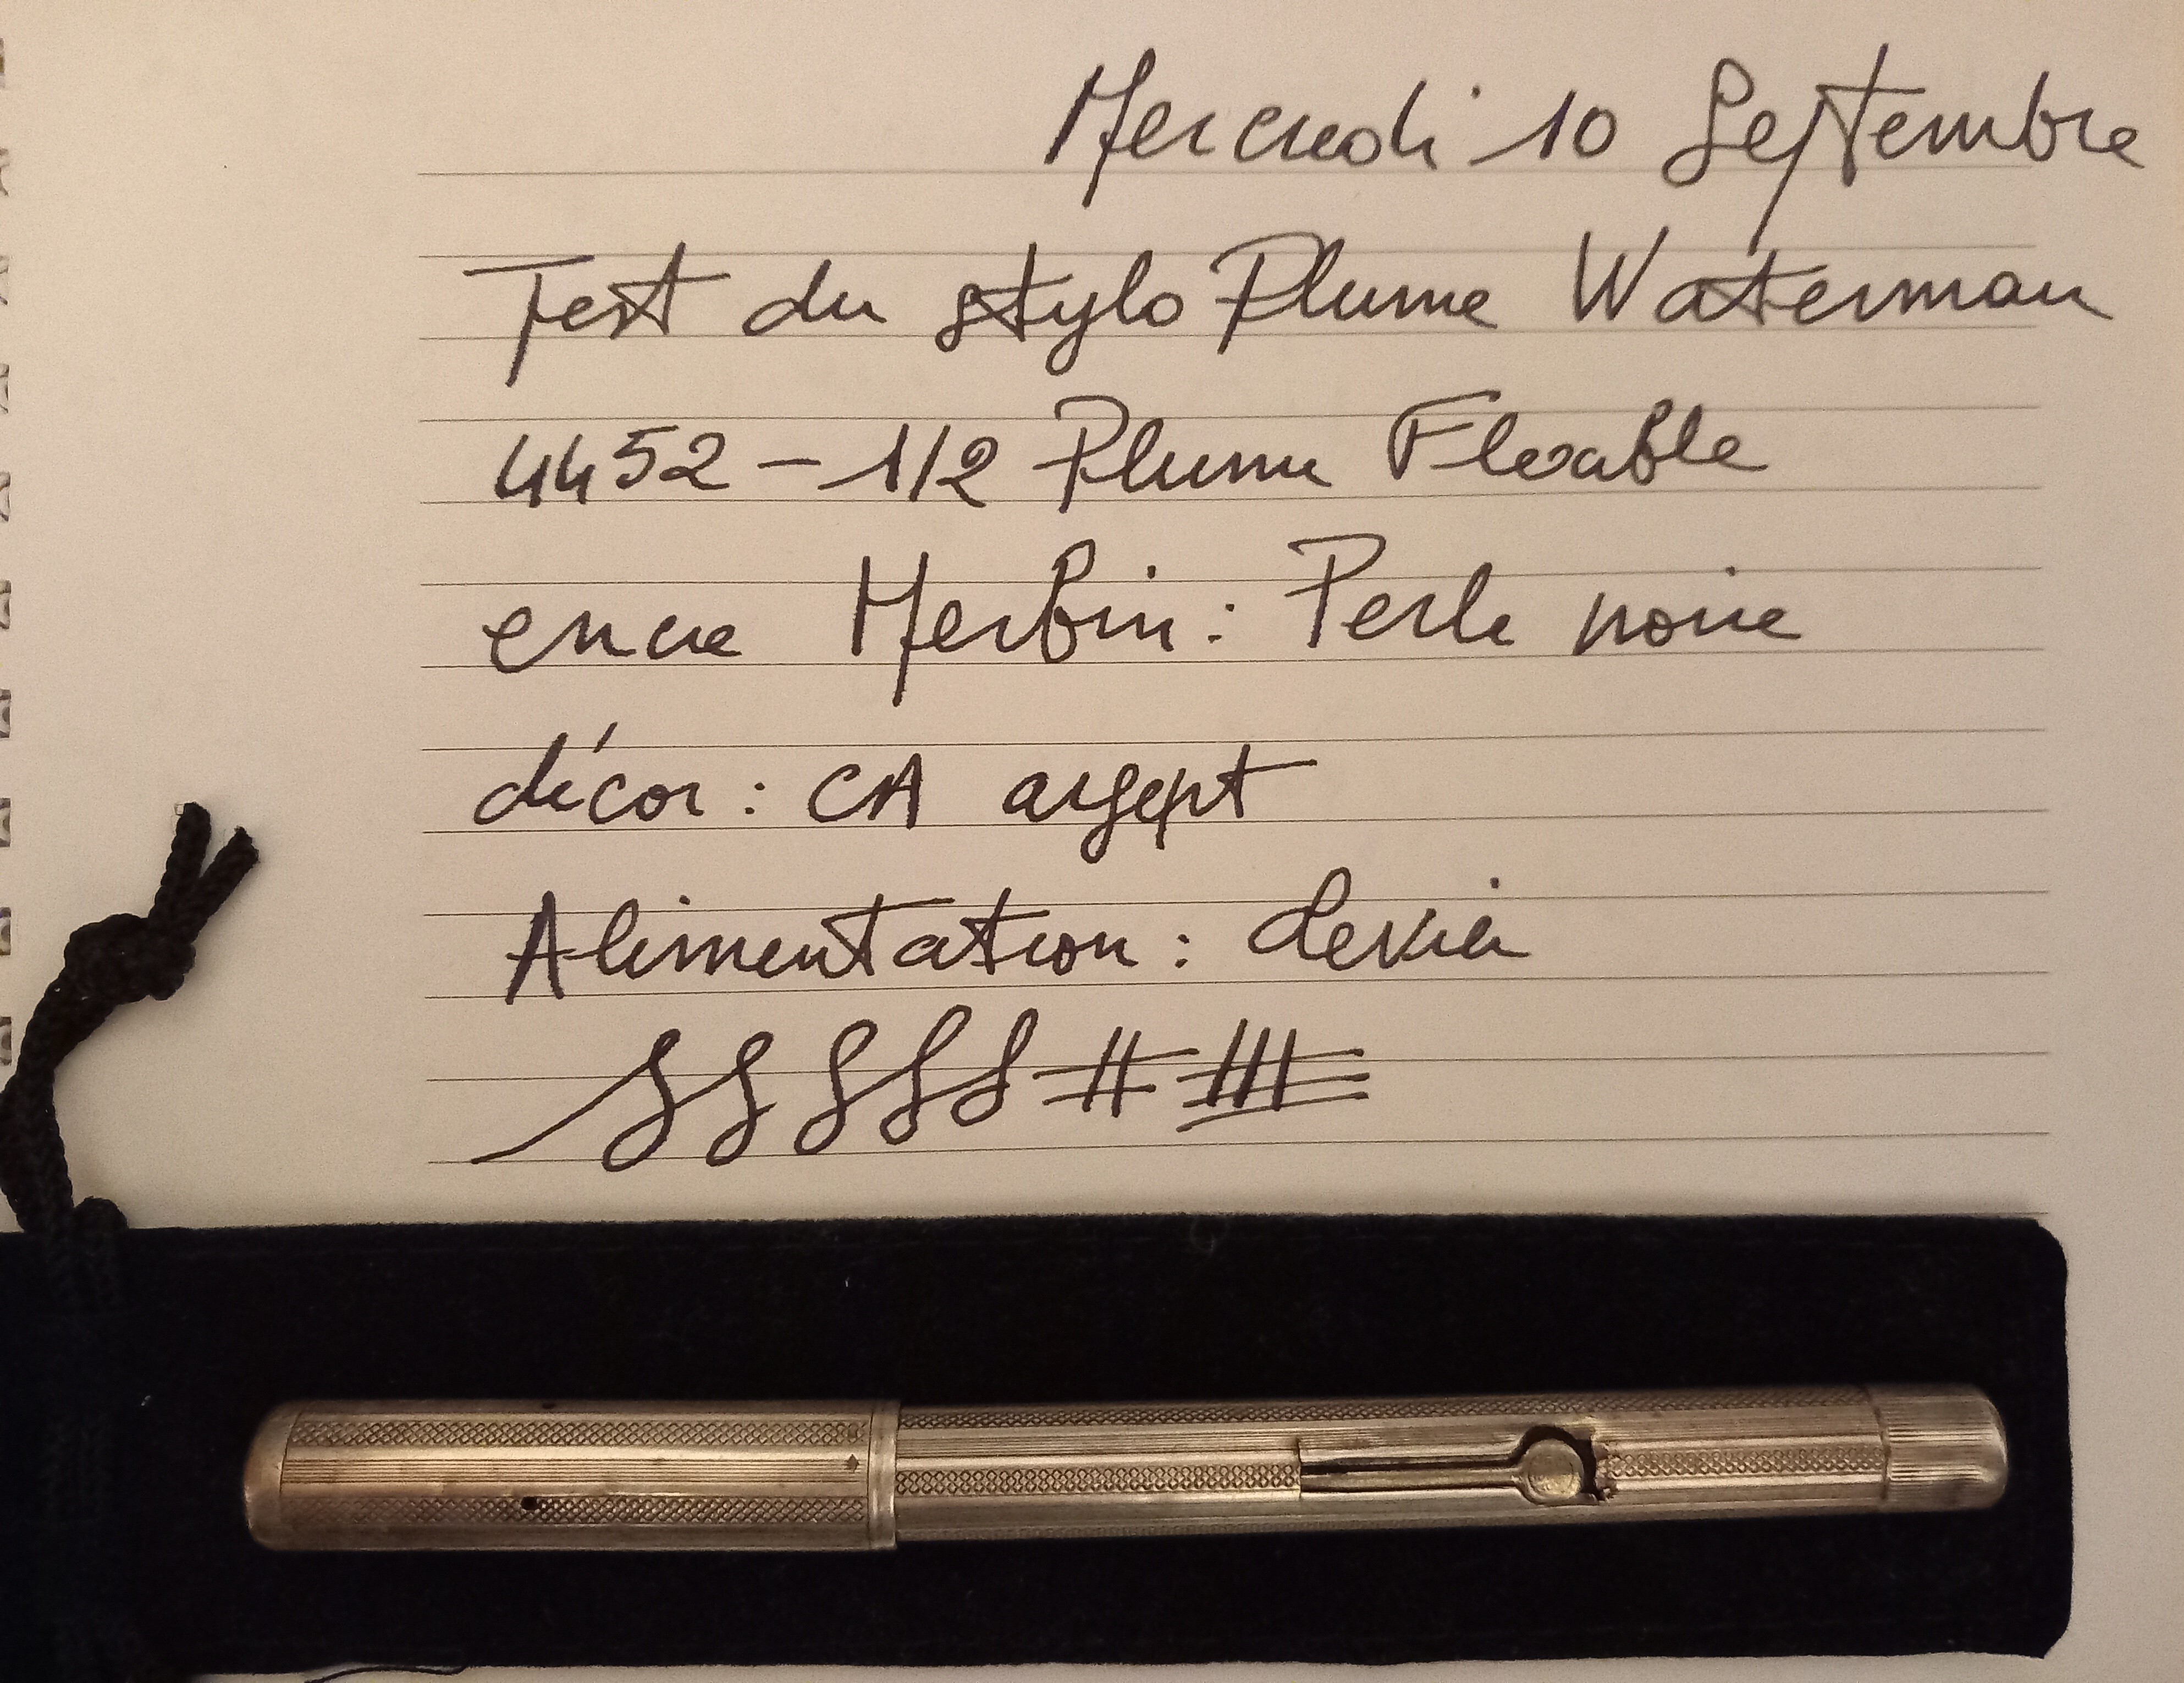 Mercredi 10 Septembre
Test du stylo Plume Waterman
4452 - 1/2 Plume Flexable
encre Herbin : Perle noire
décor : CA argept
Alimentation : Levier